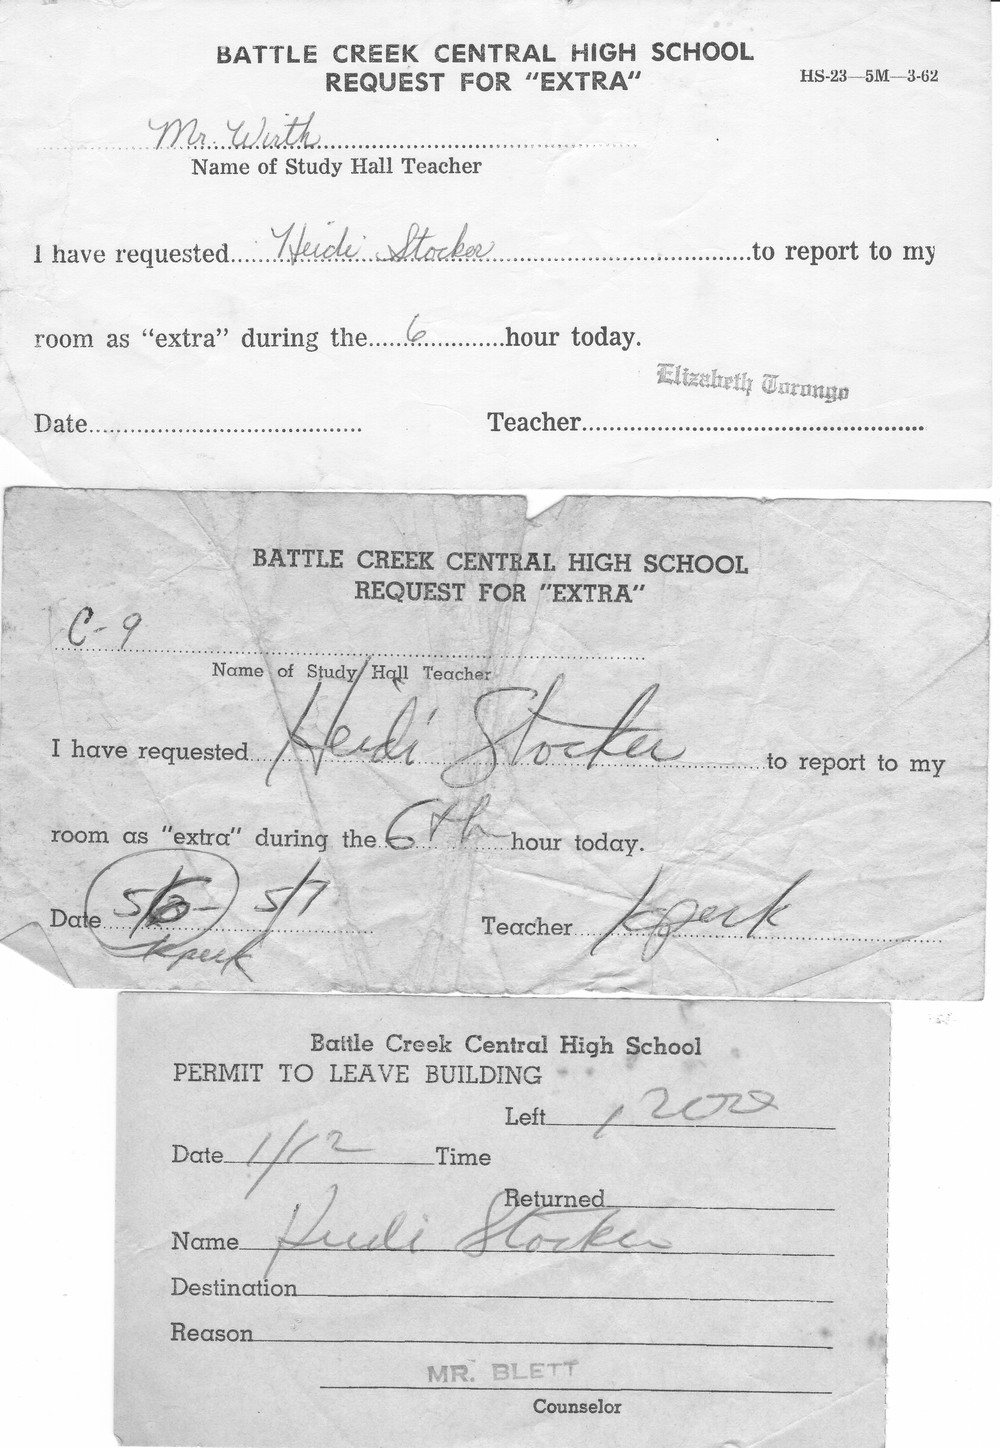 BATTLE CREEK CENTRAL HIGH SCHOOL
REQUEST FOR "EXTRA" HS-23—5M—3-62
Mr. Wirth
Name of Study Hall Teacher
I have requested Heidi Stocker to report to my
room as "extra" during the 6 hour today.
Elizabeth Torongo
Date Teacher
BATTLE CREEK CENTRAL HIGH SCHOOL
REQUEST FOR "EXTRA"
C-9
Name of Study Hall Teacher
I have requested Heidi Stocker to report to my
room as "extra" during the 6th hour today.
Date 5/6 5/7 Teacher Kperk
Kperk
Battle Creek Central High School
PERMIT TO LEAVE BUILDING
Left
Date 1/12 Time
Returned
Name Heidi Stocker
Destination
Reason
MR. BLETT
Counselor